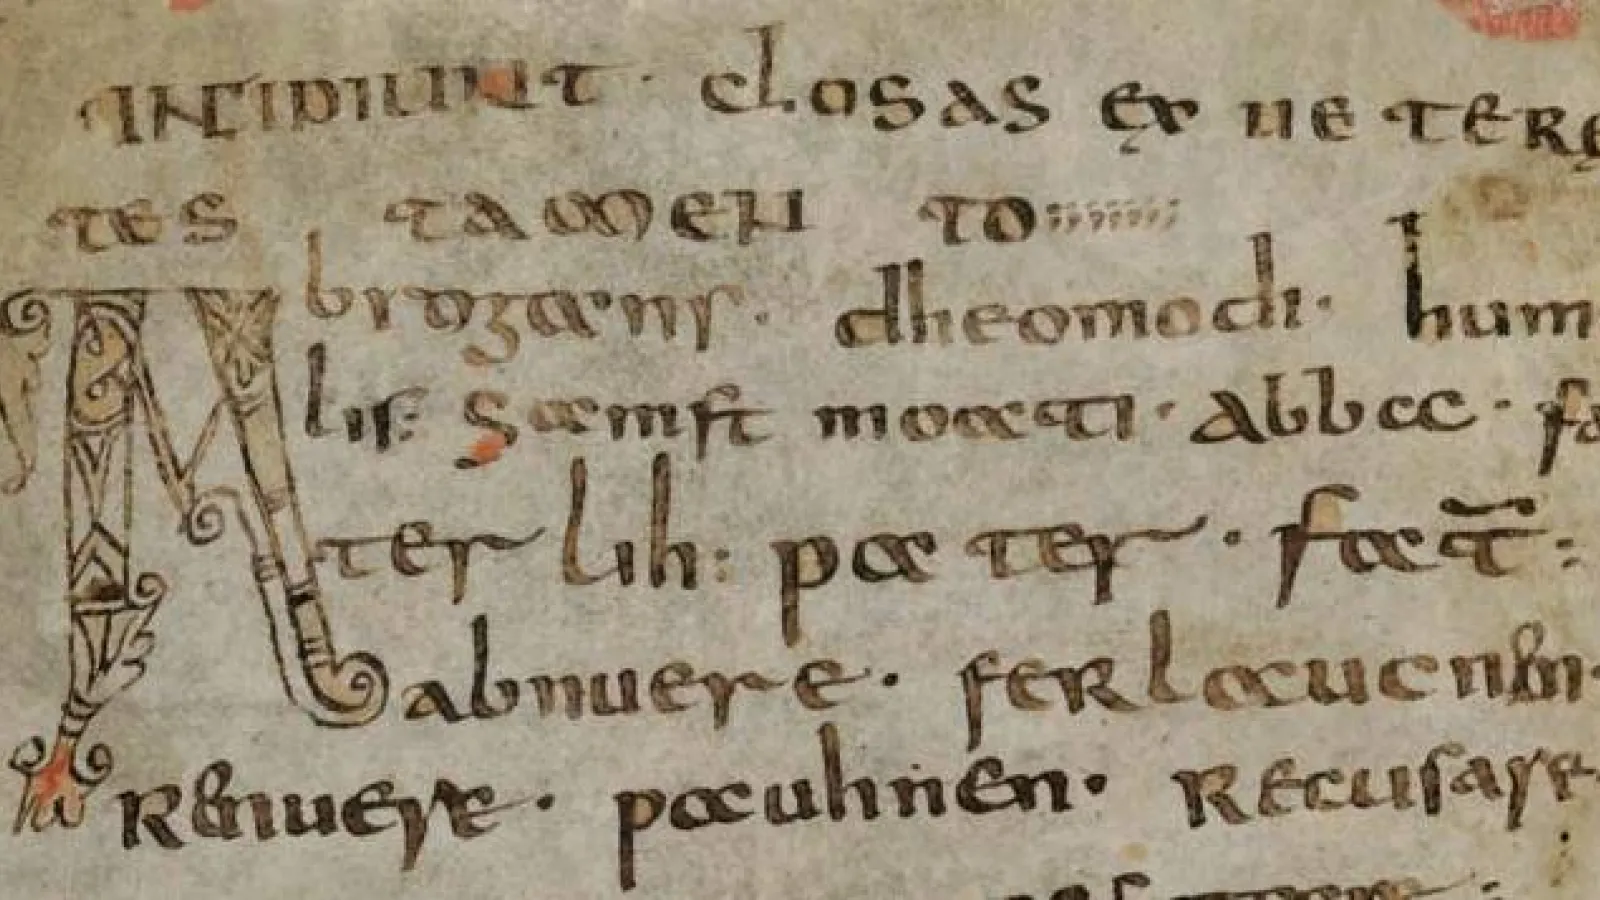 INCIPIUNT · CLOSAS EX UETERE
TES TAMEN TO
Abrogans · dheomodi · hum
lis: samft moati · abba · fa
ter lih: pater · fat̄:
abnuere · ferlaucnen ·
Renuere · pauhnen · Recusare